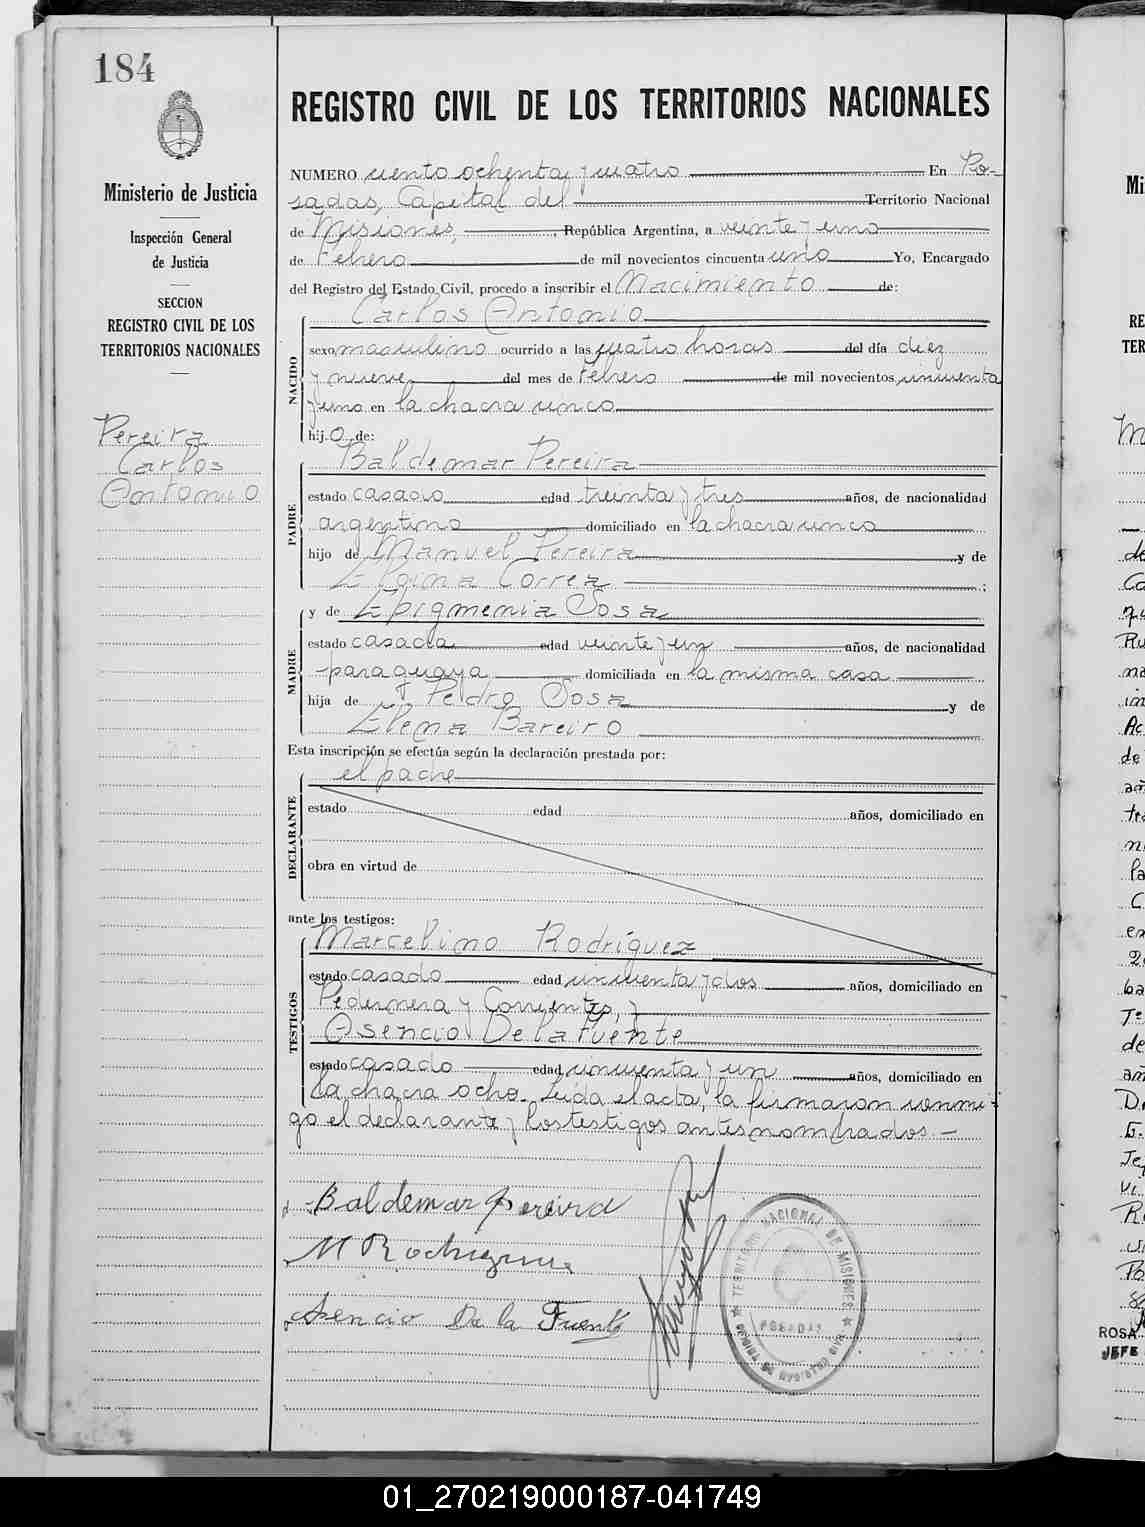 184
Ministerio de Justicia
Inspección General
de Justicia
SECCION
REGISTRO CIVIL DE LOS
TERRITORIOS NACIONALES
Pereira
Carlos
Antonio
REGISTRO CIVIL DE LOS TERRITORIOS NACIONALES
NUMERO ciento ochenta y cuatro En Po-
sadas, Capital del Territorio Nacional
de Misiones, República Argentina, a veinte y uno
de Febrero de mil novecientos cincuenta uno Yo, Encargado
del Registro del Estado Civil, procedo a inscribir el Nacimiento de:
NACIDO
Carlos Antonio
sexo masculino ocurrido a las cuatro horas del día diez
y nueve del mes de Febrero de mil novecientos cincuenta
y uno en la chacra cinco
hij o de:
PADRE
Baldemar Pereira
estado casado edad treinta y tres años, de nacionalidad
argentino domiciliado en la chacra cinco
hijo de Manuel Pereira y de
Correa ;
MADRE
y de Epigmenia Sosa
estado casada edad veinte y un años, de nacionalidad
paraguaya domiciliada en la misma casa
hija de Pedro Sosa y de
Elena Bareiro
Esta inscripción se efectúa según la declaración prestada por:
DECLARANTE
el padre
estado edad años, domiciliado en
obra en virtud de
ante los testigos:
TESTIGOS
Marcelino Rodríguez
estado casado edad cincuenta y dos años, domiciliado en
Pedernera y Corrientes, y
Asencio De la Fuente
estado casado edad cincuenta y un años, domiciliado en
la chacra ocho. Leida el acta, la firmaron conmi-
go el declarante y los testigos antes nombrados.—
Baldemar Pereira
M Rodriguez
Asencio De la Fuente
TERRITORIO NACIONAL DE MISIONES
POSADAS
ROSA
JEFE
01_270219000187-041749